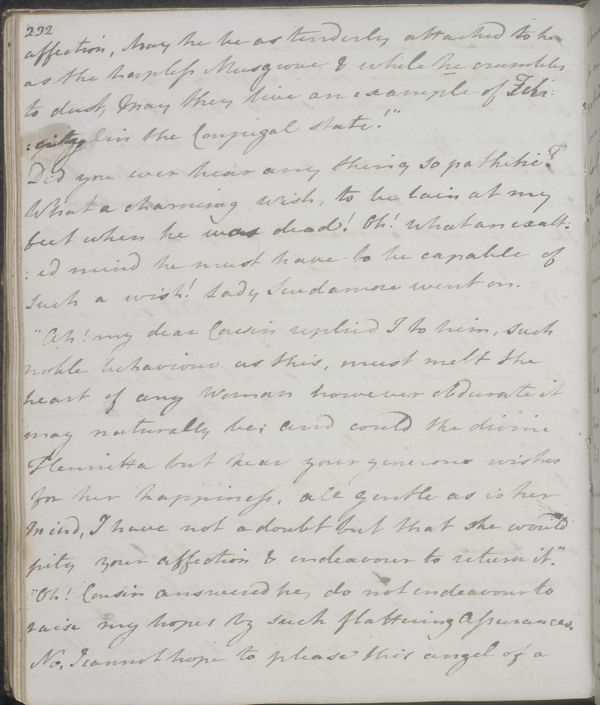 232
affection, May he be as tenderly attached to her
as the hapless Musgrove & while he crumbles
to dust, May they live an example of Feli:
:city in the Conjugal state!"
Did you ever hear any thing so pathetic?
What a charming wish, to be lain at my
feet when he was dead! Oh! what an exalt:
:ed mind he must have to be capable of
such a wish! Lady Scudamore went on.
"Ah! my dear Cousin replied I to him, such
noble behaviour as this, must melt the
heart of any Woman however obdurate it
may naturally be; and could the divine
Henrietta but hear your generous wishes
for her happiness, all gentle as is her
Mind, I have not a doubt but that she would
pity your affection & endeavour to return it".
"Oh! Cousin answered he, do not endeavour to
raise my hopes by such flattering Assurances.
No, I cannot hope to please this angel of a